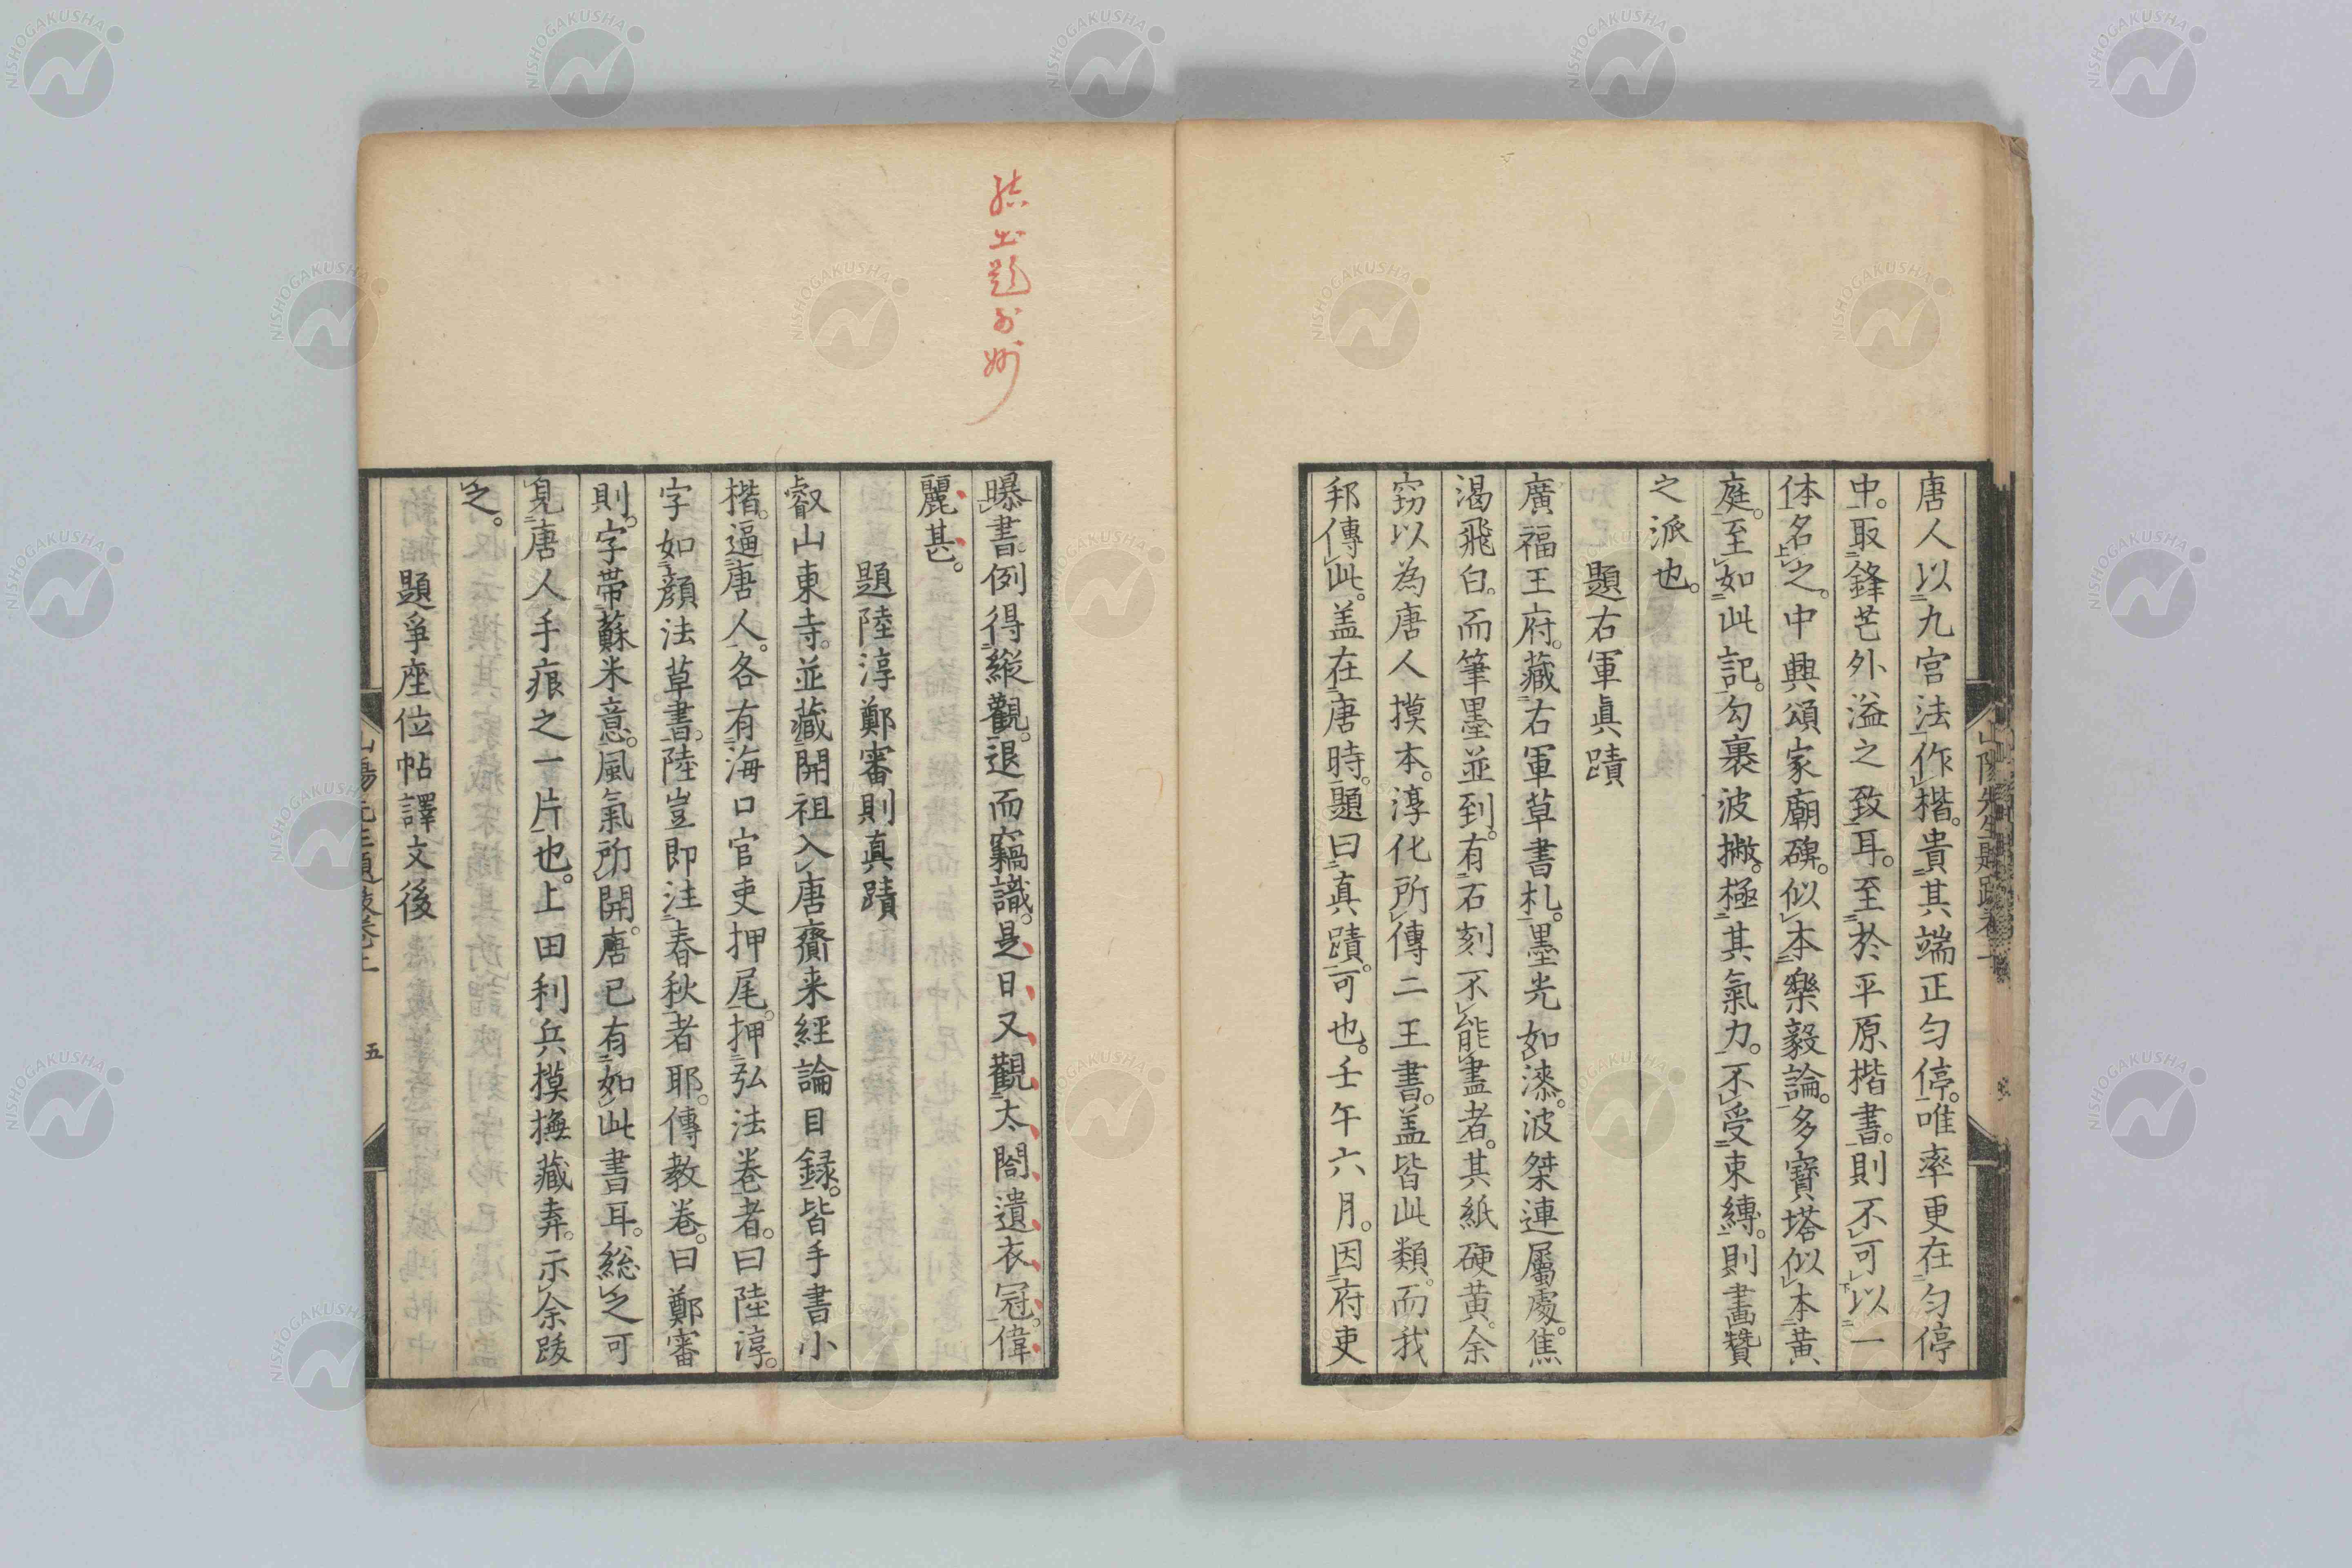 唐人以九宮法作楷。貴其端正勻停。唯率更在勻停
中。取鋒芒外溢之致耳。至於平原楷書。則不可以一
体名之。中興頌家廟碑。似本樂毅論。多寶塔似本黃
庭。至如此記。勾裹波撇。極其氣力。不受束縛。則畫贊
之派也。
題右軍眞蹟
廣福王府。藏右軍草書札。墨光如漆。波桀連屬處。焦
渴飛白。而筆墨並到。有石刻不能盡者。其紙硬黃。余
窃以為唐人摸本。淳化所傳二王書。盖皆此類。而我
邦傳此。盖在唐時。題曰真蹟。可也。壬午六月。因府吏
曝書。例得縱觀。退而竊識。是日又觀太閤遺衣冠。偉
麗甚。
題陸淳鄭審則真蹟
叡山東寺。並藏開祖入唐齎来經論目録。皆手書小
楷。逼唐人。各有海口官吏押尾。押弘法卷者。曰陸淳。
字如顔法草書。陸豈即注春秋者耶。傳教卷。曰鄭審
則。字帶蘇米意。風氣所開。唐已有如此書耳。総之可
見唐人手痕之一片也。上田利兵摸撫藏弆。示余跋
之。
題爭座位帖譯文後
五
NISHOGAKUSHA